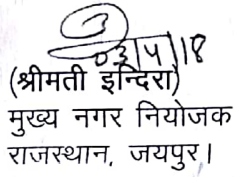 03/4/18
(श्रीमती इन्दिरा)
मुख्य नगर नियोजक
राजस्थान, जयपुर।